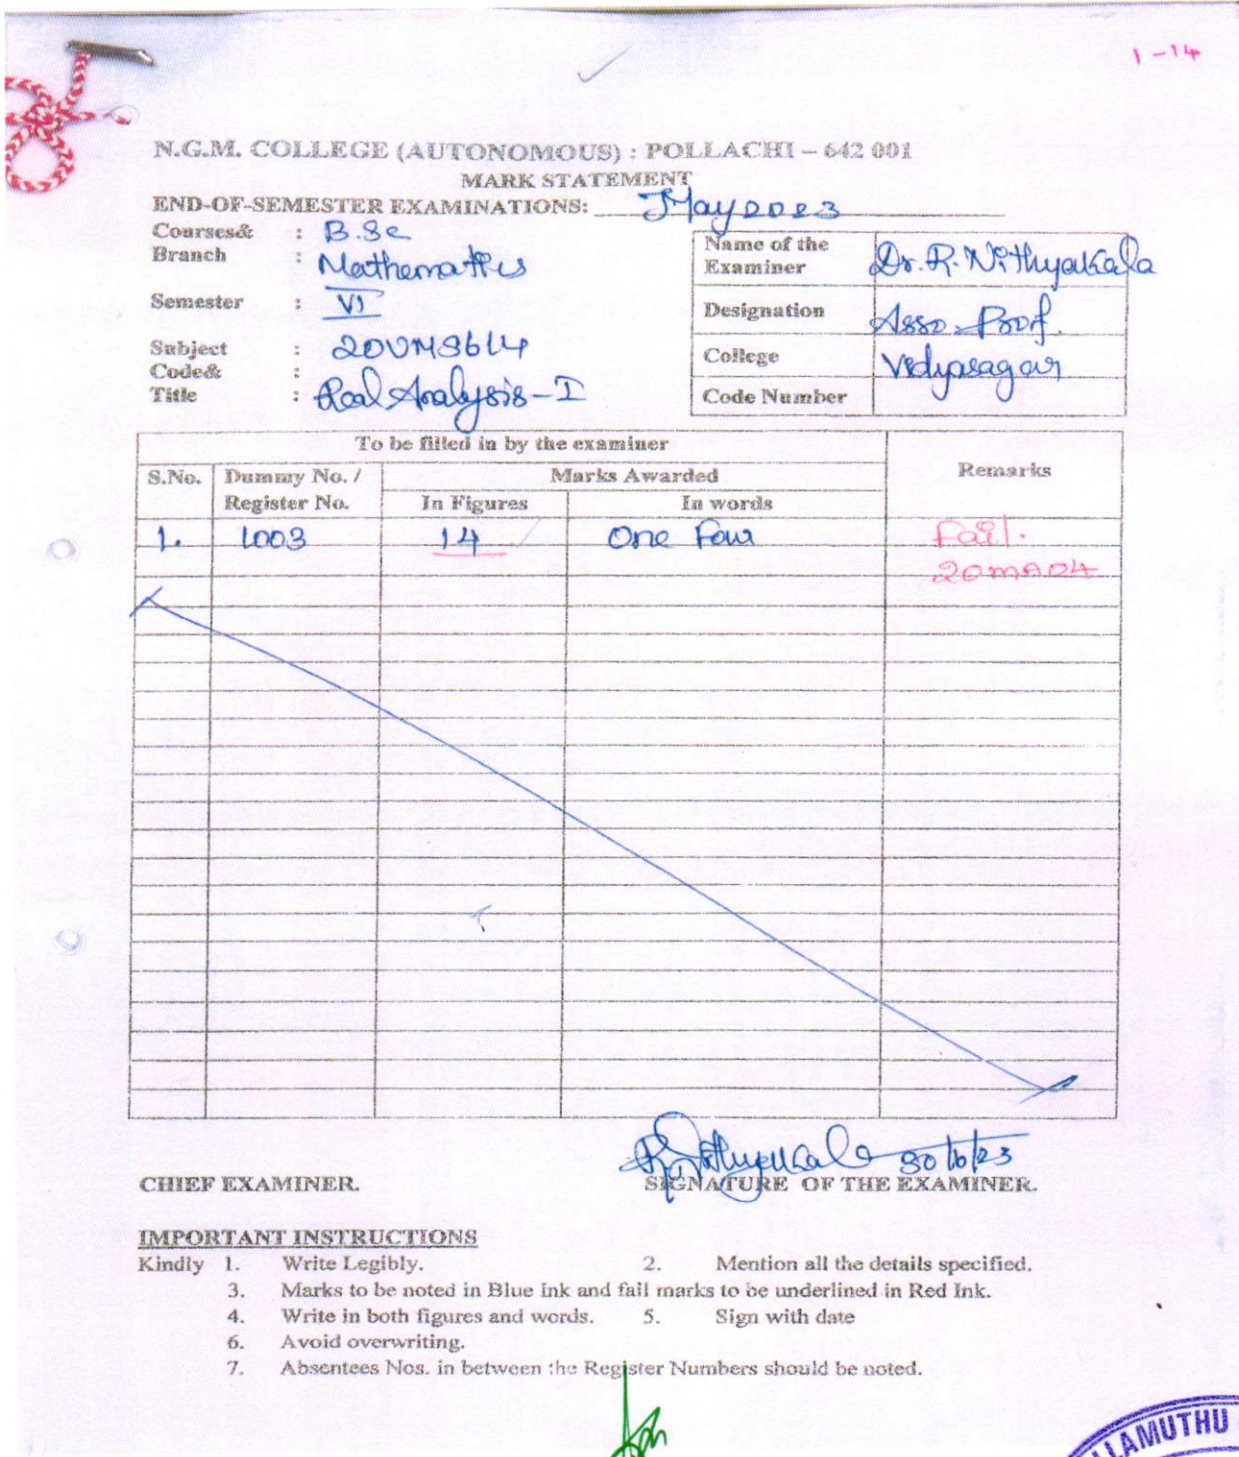 1-14
N.G.M. COLLEGE (AUTONOMOUS) : POLLACHI – 642 001
MARK STATEMENT
END-OF-SEMESTER EXAMINATIONS: May 2023
Courses& : B.Sc
Branch : Mathematics
Semester : VI
Subject : 20UMS614
Code& :
Title : Real Analysis - I
Name of the Examiner Dr. R. Nithyakala
Designation Asso. Prof.
College Vidyasagar
Code Number
To be filled in by the examiner
S.No. Dummy No. / Register No. Marks Awarded Remarks
In Figures In words
1. 1003 14 One Four Fail.
20MA04
R. Nithyakala 30/6/23
CHIEF EXAMINER. SIGNATURE OF THE EXAMINER.
IMPORTANT INSTRUCTIONS
Kindly 1. Write Legibly. 2. Mention all the details specified.
3. Marks to be noted in Blue Ink and fail marks to be underlined in Red Ink.
4. Write in both figures and words. 5. Sign with date
6. Avoid overwriting.
7. Absentees Nos. in between the Register Numbers should be noted.
LLAMUTHU